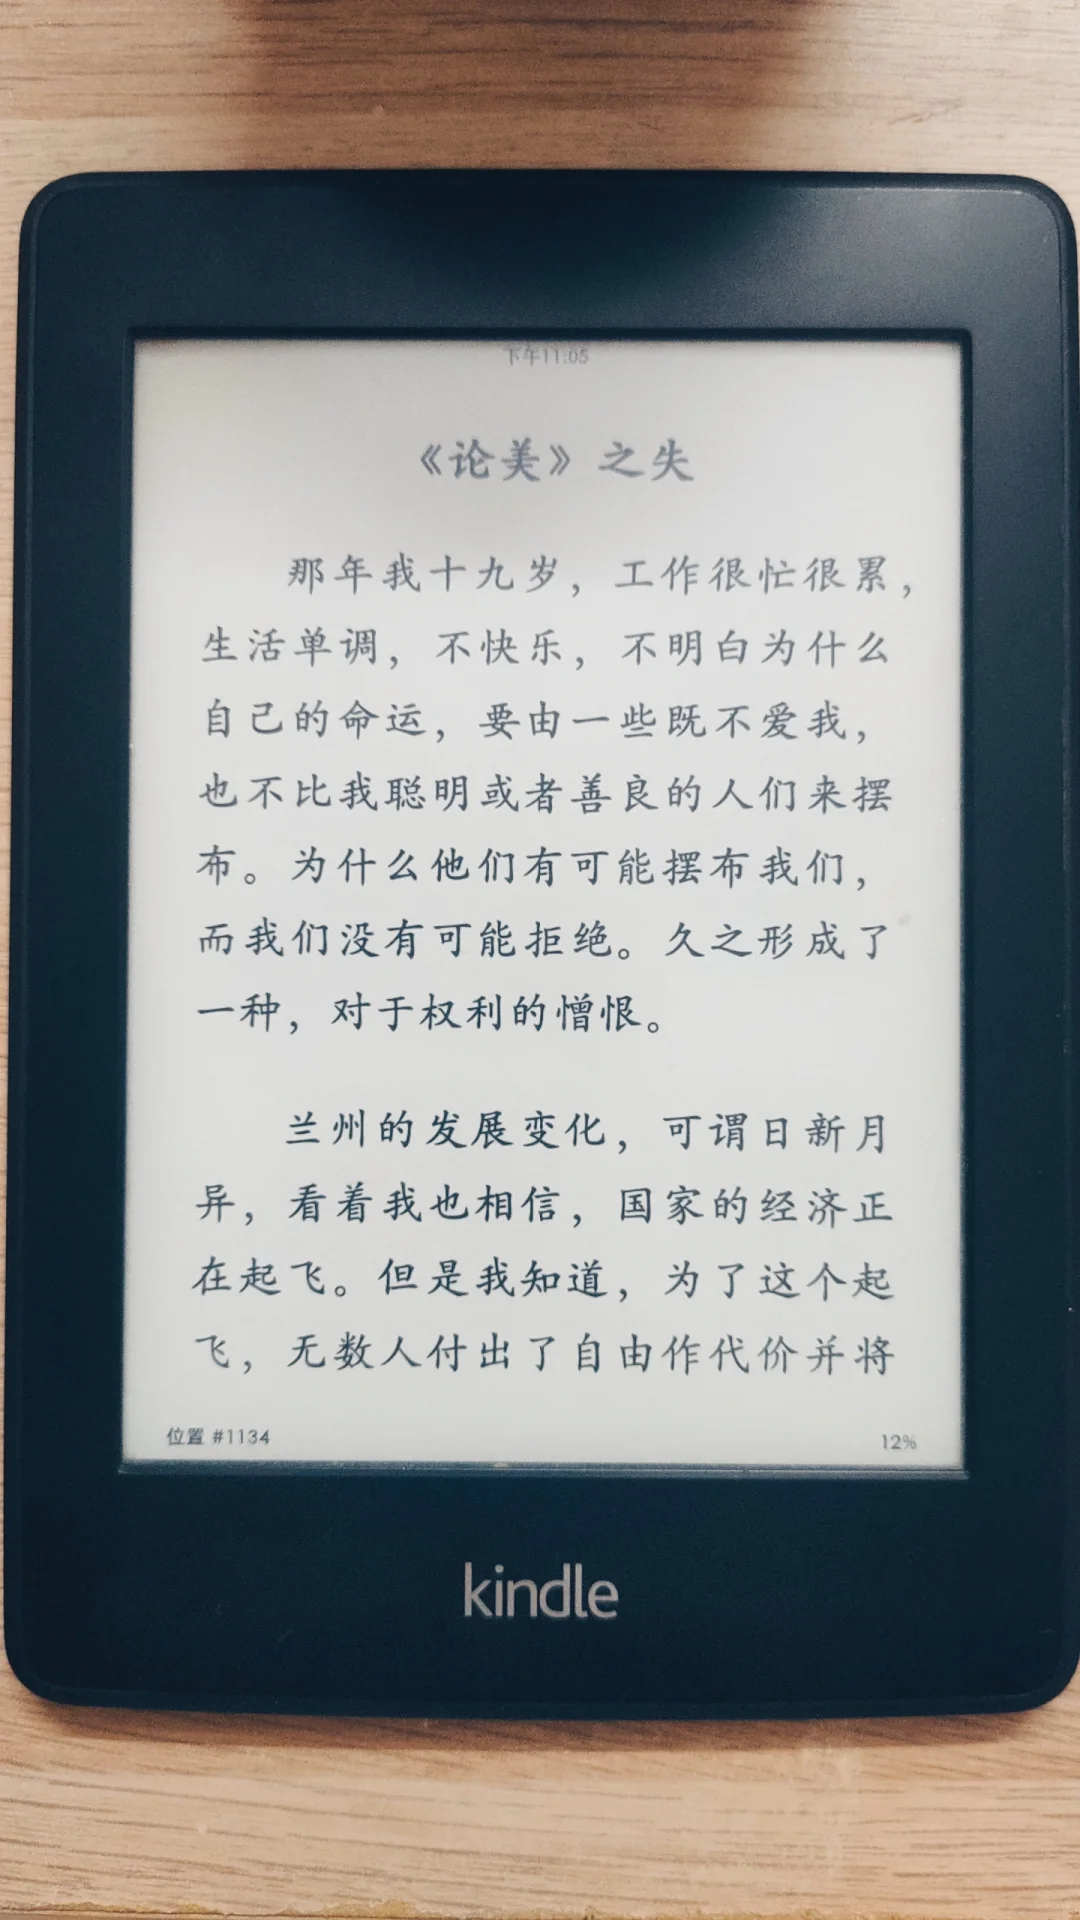 下午11:05
《论美》之失
那年我十九岁，工作很忙很累，
生活单调，不快乐，不明白为什么
自己的命运，要由一些既不爱我，
也不比我聪明或者善良的人们来摆
布。为什么他们有可能摆布我们，
而我们没有可能拒绝。久之形成了
一种，对于权利的憎恨。
兰州的发展变化，可谓日新月
异，看着我也相信，国家的经济正
在起飞。但是我知道，为了这个起
飞，无数人付出了自由作代价并将
位置 #1134
12%
kindle